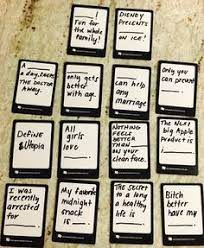 ______!
Fun for the
whole
family!
DISNEY
PRESENTS
______
ON ICE!
A ______
a day, keeps
THE DOCTOR
AWAY.
______
only gets
better
with age.
______
can help
any
marriage
Only you can
prevent
______.
Define
Utopia
All
girls
love
______.
NOTHING
FEELS
BETTER THAN
______
ON your
clean face.
The NEXT
big Apple
Product is
______!
I was
recently
arrested
for ______.
My favorite
midnight
snack
is ______.
The secret
to a long
& healthy
life is
______.
Bitch
better
have my
______.